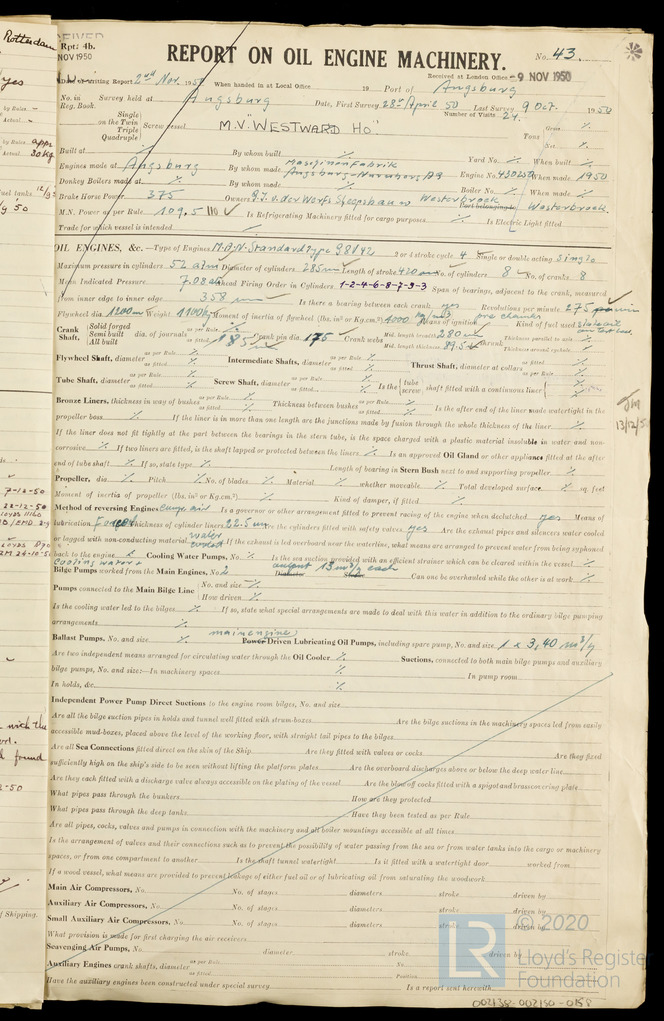 Rpt: 4b.
NOV 1950
REPORT ON OIL ENGINE MACHINERY.
No. 43.
Received at London Office - 9 NOV 1950
Date of writing Report 2nd Nov. 1950 When handed in at Local Office 19 Port of Augsburg
No. in Reg. Book. Survey held at Augsburg Date, First Survey 28th April 50 Last Survey 9 Oct. 1950
Number of Visits 24.
Single on the Twin Triple Quadruple Screw vessel M.V. "WESTWARD HO" Tons Gross % Net %
Built at % By whom built % Yard No. % When built %
Engines made at Augsburg By whom made Maschinenfabrik Augsburg-Nürnberg AG Engine No. When made 1950
Donkey Boilers made at % By whom made % Boiler No. % When made %
Brake Horse Power 375 Owners Westerbroek Port belonging to Westerbroek.
M.N. Power as per Rule 109.5 110 Is Refrigerating Machinery fitted for cargo purposes % Is Electric Light fitted
Trade for which vessel is intended
OIL ENGINES, &c.—Type of Engines M.A.N. Standard Type 2 or 4 stroke cycle 4 Single or double acting single
Maximum pressure in cylinders 52 atm Diameter of cylinders 285 mm Length of stroke 420 mm No. of cylinders 8 No. of cranks 8
Mean Indicated Pressure 7.08 Firing Order in Cylinders Span of bearings, adjacent to the crank, measured
from inner edge to inner edge 358 mm Is there a bearing between each crank yes Revolutions per minute 275
Flywheel dia. 1200 mm Weight 1100 kg Moment of inertia of flywheel (lbs. in² or Kg.cm²) Means of ignition pre chamber Kind of fuel used
Crank Shaft, Solid forged Semi built All built dia. of journals as per Rule % as fitted 185 Crank pin dia. 175 Crank webs Mid. length breadth 280 mm Mid. length thickness 89.5 shrunk Thickness parallel to axis % Thickness around eyehole %
Flywheel Shaft, diameter as per Rule % as fitted % Intermediate Shafts, diameter as per Rule % as fitted % Thrust Shaft, diameter at collars as per Rule % as fitted %
Tube Shaft, diameter as per Rule % as fitted % Screw Shaft, diameter as per Rule % as fitted % Is the { tube screw } shaft fitted with a continuous liner { %
Bronze Liners, thickness in way of bushes as per Rule % as fitted % Thickness between bushes as per Rule % as fitted % Is the after end of the liner made watertight in the
propeller boss % If the liner is in more than one length are the junctions made by fusion through the whole thickness of the liner %
If the liner does not fit tightly at the part between the bearings in the stern tube, is the space charged with a plastic material insoluble in water and non-
corrosive % If two liners are fitted, is the shaft lapped or protected between the liners % Is an approved Oil Gland or other appliance fitted at the after
end of tube shaft % If so, state type % Length of bearing in Stern Bush next to and supporting propeller %
Propeller, dia. % Pitch % No. of blades % Material % whether moveable % Total developed surface % sq. feet
Moment of inertia of propeller (lbs. in² or Kg.cm²) % Kind of damper, if fitted %
Method of reversing Engines Comp air Is a governor or other arrangement fitted to prevent racing of the engine when declutched yes Means of
lubrication Forced Thickness of cylinder liners 22.5 mm Are the cylinders fitted with safety valves yes Are the exhaust pipes and silencers water cooled
or lagged with non-conducting material water cooled If the exhaust is led overboard near the waterline, what means are arranged to prevent water from being syphoned
back to the engine % Cooling Water Pumps, No. % Is the sea suction provided with an efficient strainer which can be cleared within the vessel %
cooling water +
Bilge Pumps worked from the Main Engines, No. 2 Diameter Stroke output 13 m³/h each Can one be overhauled while the other is at work %
Pumps connected to the Main Bilge Line { No. and size % How driven %
Is the cooling water led to the bilges % If so, state what special arrangements are made to deal with this water in addition to the ordinary bilge pumping
arrangements %
Ballast Pumps, No. and size % main engine Power Driven Lubricating Oil Pumps, including spare pump, No. and size 1 x 3,40 m³/h
Are two independent means arranged for circulating water through the Oil Cooler % Suctions, connected to both main bilge pumps and auxiliary
bilge pumps, No. and size:—In machinery spaces % In pump room
In holds, &c. %
Independent Power Pump Direct Suctions to the engine room bilges, No. and size
Are all the bilge suction pipes in holds and tunnel well fitted with strum-boxes Are the bilge suctions in the machinery spaces led from easily
accessible mud-boxes, placed above the level of the working floor, with straight tail pipes to the bilges
Are all Sea Connections fitted direct on the skin of the Ship Are they fitted with valves or cocks Are they fixed
sufficiently high on the ship's side to be seen without lifting the platform plates Are the overboard discharges above or below the deep water line
Are they each fitted with a discharge valve always accessible on the plating of the vessel Are the blow off cocks fitted with a spigot and brass covering plate
What pipes pass through the bunkers How are they protected
What pipes pass through the deep tanks Have they been tested as per Rule
Are all pipes, cocks, valves and pumps in connection with the machinery and all boiler mountings accessible at all times
Is the arrangement of valves and their connections such as to prevent the possibility of water passing from the sea or from water tanks into the cargo or machinery
spaces, or from one compartment to another Is the shaft tunnel watertight Is it fitted with a watertight door worked from
If a wood vessel, what means are provided to prevent leakage of either fuel oil or of lubricating oil from saturating the woodwork
Main Air Compressors, No. No. of stages diameters stroke driven by
Auxiliary Air Compressors, No. No. of stages diameters stroke driven by
Small Auxiliary Air Compressors, No. No. of stages diameters stroke driven by
What provision is made for first charging the air receivers
Scavenging Air Pumps, No. diameter stroke driven by
Auxiliary Engines crank shafts, diameter as per Rule as fitted No. Position
Have the auxiliary engines been constructed under special survey Is a report sent herewith
002138-002150-0158
© 2020
LR
Lloyd's Register
Foundation
Rotterdam
yes
7-12-50
13/12/50
of Shipping.